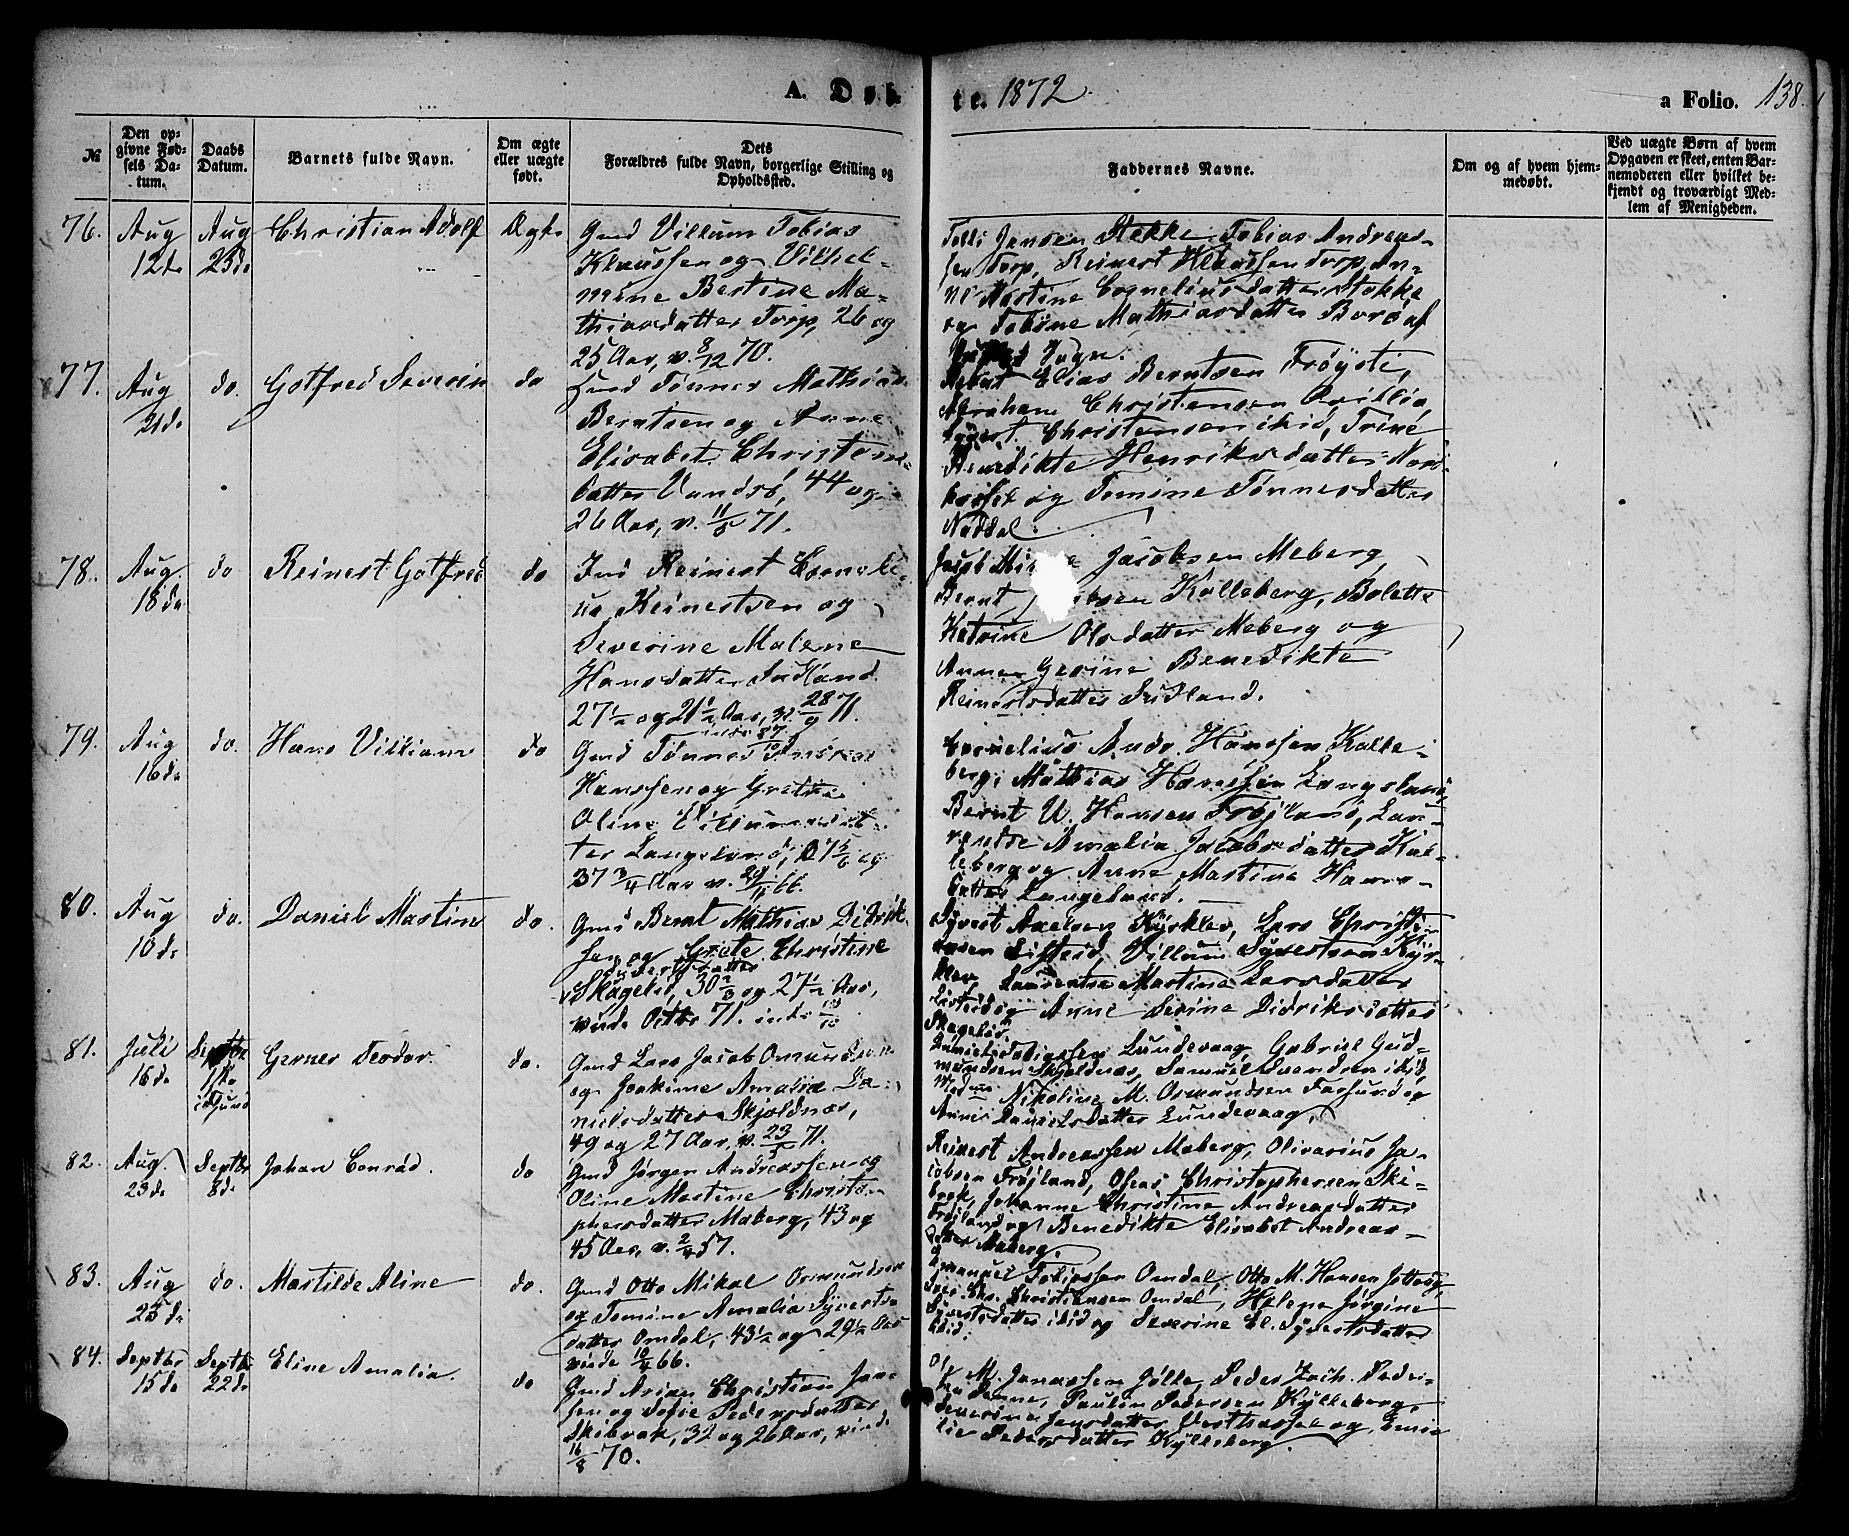 A. Døb-
te. 1872.
a Folio. 138.
№
Den op-
givne Fød-
sels Da-
tum.
Daabs
Datum.
Barnets fulde Navn.
Om ægte
eller uægte
født.
Dets
Forældres fulde Navn, borgerlige Stilling og
Opholdssted.
Faddernes Navne.
Om og af hvem hjem-
medøbt.
Ved uægte Børn af hvem
Opgaven er skeet, enten Bar-
nemoderen eller hvilket be-
kjendt og troværdigt Med-
lem af Menigheden.
76.
Aug
12de
Aug
23de
Christian Adolf
Ægte
Gmd Villum Tobias
Klaussen og Vilhel-
mine Bertine Ma-
thiasdatter Torp, 26 og
25 Aar, v. 8/12 70.
Jensen Stokke, Tobias Andreas-
sen Torp, Reinert Klaussen Torp, An-
Martine Corneliusdatter Stokke
og Tobine Mathiasdatter Borø af
Sogn.
77.
Aug
21de
do.
Gotfred Severin
do
Gmd Tønnes Mathias
Berntsen og Anne
Elisabet Christens-
datter Vandsø, 44 og
26 Aar, v. 11/5 71.
Elias Berntsen Frøysti,
Abraham Christensen
Christensen ibid, Trine
Benedikte Henriksdatter
og Tomine Tønnesdatter
78.
Aug.
18de
do
Reinert Gotfred
do
Ind Reinert Corneli-
us Reinertsen og
Severine Malene
Hansdatter Sudland
27 1/2 og 21 1/2 Aar, v. 28/9 71.
Jacobsen Meberg,
Bernt Kolleberg, Bolette
Katrine Olsdatter Meberg og
Anne Gesine Benedikte
Reinertsdatter Sudland.
79.
Aug
16de
do.
Hans Villiam
do
Gmd Tønnes Andreas
Hanssen og Gretha
Oline Villumsdat-
ter Langeland,
37 3/4 Aar v. 29/11 66.
Cornelius Andr. Hanssen Kolle-
berg, Mathias Hanssen Langeland,
Bernt U. Hansen Frøjland, Lau-
rentse Amalia Jacobsdatter Kol-
leberg og Anne Martine Hans-
datter Langeland.
80.
Aug
10de
do.
Daniel Martin
do.
Gmd Bernt Mathias Didrik-
sen og Grete Christine
Skagelid, 30 2/3 og 27 1/2 Aar,
viede Octbr 71.
Syvert Axelsen Kyrklev, Lars Christi-
Villum Syvertsen Kyr-
klev, Laurentse Martine Larsdatter
og Anne Serine Didriksdatter
Skagelid.
81.
Juli
16de
Septbr
1ste
Gerner Teodor.
do.
Gmd Lars Jacob Omundsen
og Joakime Amalia Da-
nielsdatter Skjoldnæs,
49 og 27 Aar, v. 23/5 71.
Tobiassen Lundevaag, Gabriel Gud-
mundsen Skjoldnæs, Samuel Svendsen ibid,
Nikoline M. Osmundsen Farsund og
Anne Danielsdatter Lundevaag.
82.
Aug.
23de
Septbr
8de
Johan Conrad.
do
Gmd Jørgen Andreassen og
Oline Martine Christo-
phersdatter Maberg, 43 og
45 Aar, v. 2/4 57.
Reinert Andreassen Maberg, Olivarius Ja-
cobsen Frøjland, Oseas Christophersen Ski-
brek, Johanne Christine Andreasdatter
Frøjland og Benedikte Elisabet Andreas-
datter Maberg.
83.
Aug
25de
do.
Martilde Aline
do.
Gmd Otto Mikal Osmundsen
og Tomine Amalia Syverts-
datter Omdal, 43 1/2 og 29 1/2 Aar
viede 10/4 66.
Emanuel Tobiassen Omdal, Otto M. Hansen
Christiansen Omdal, Helene Jørgine
Syvertsdatter ibid og Severine El. Syvertsdatter
ibid.
84.
Septbr
15de
Septbr
22de
Eline Amalia.
do
Gmd Arian Christian Jan-
sen og Sofie Pedersdatter
Skibrak, 32 og 26 Aar, viede
16/8 70.
Ole M. Janassen Jølle, Peder Zach. Peder-
sen Paulin Pedersen Kylleberg,
Severine Jansdatter Vesthassel og Emi-
lie Pedersdatter Kylleberg.